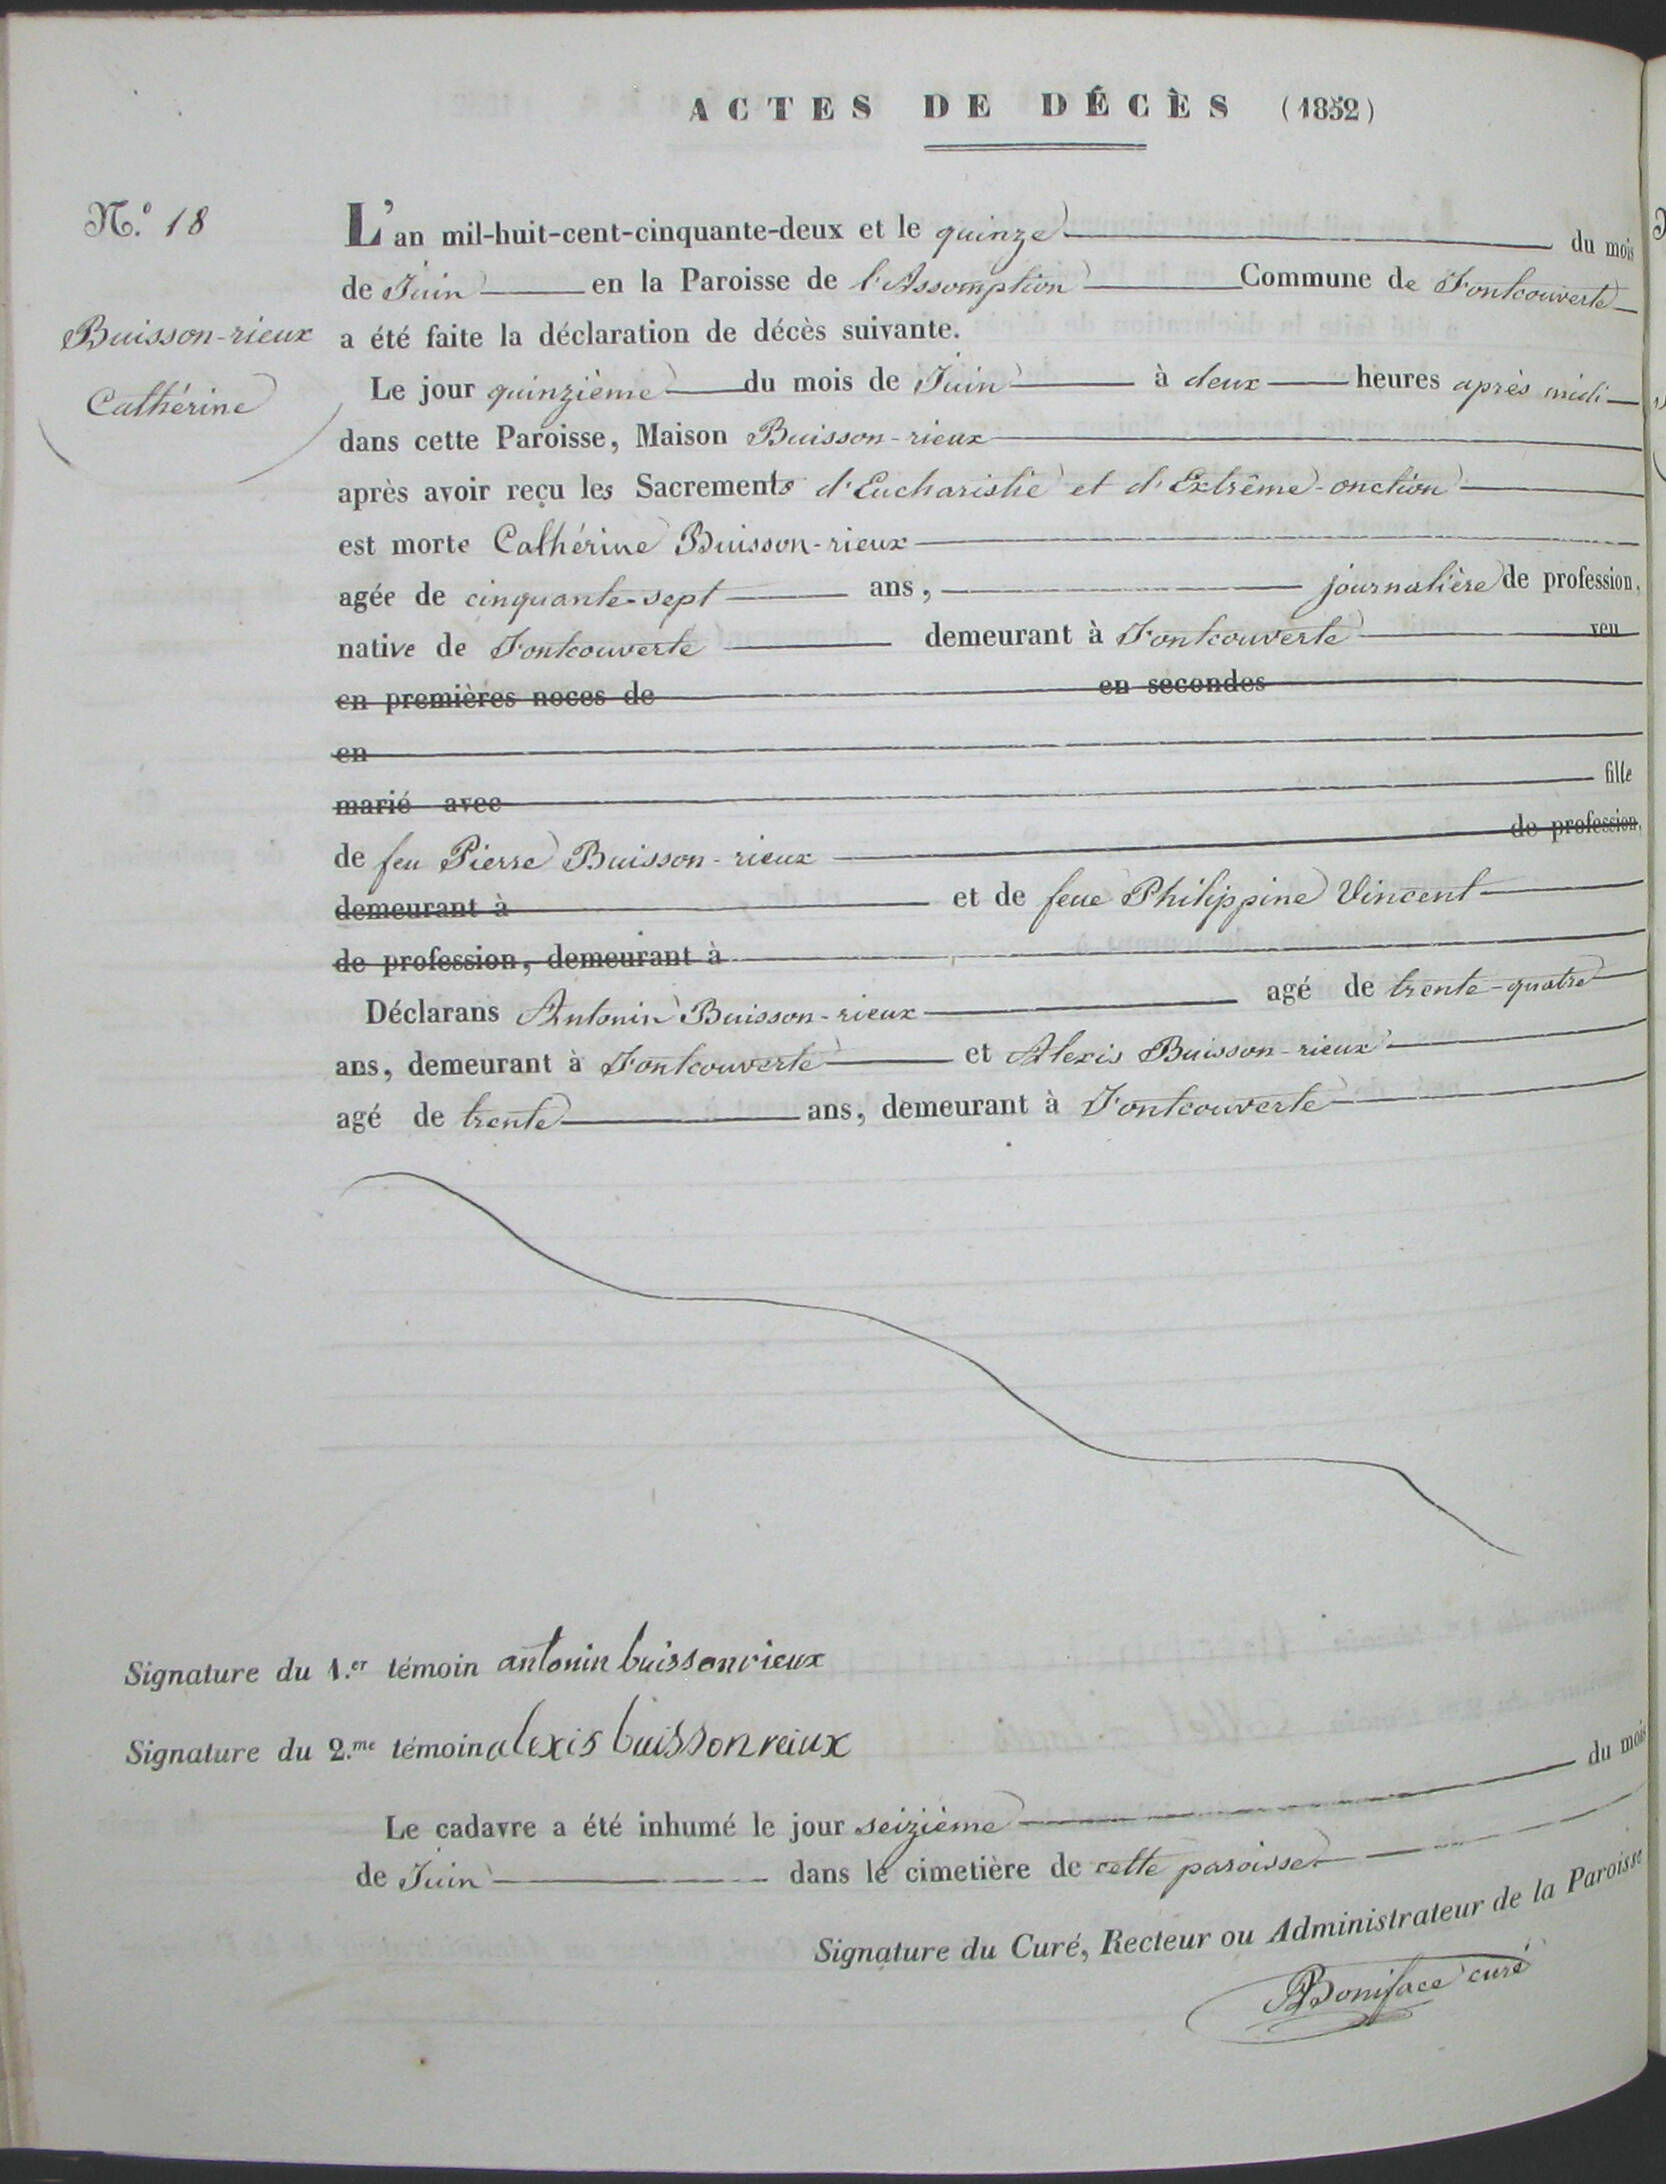 ACTES DE DÉCÈS (1852)
N.º 18
Buisson-rieux
Cathérine
L'an mil-huit-cent-cinquante-deux et le quinze du mois
de Juin en la Paroisse de l'Assomption Commune de Fontcouverte
a été faite la déclaration de décès suivante.
Le jour quinzième du mois de Juin à deux heures après midi
dans cette Paroisse, Maison Buisson-rieux
après avoir reçu les Sacrements d'Eucharistie et d'Extrême-onction
est morte Cathérine Buisson-rieux
agée de cinquante-sept ans, journalière de profession,
native de Fontcouverte demeurant à Fontcouverte veu
en premières noces de en secondes
en
marié avec fille
de feu Pierre Buisson-rieux de profession,
demeurant à et de feue Philippine Vincent
de profession, demeurant à
Déclarans Antonin Buisson-rieux agé de trente-quatre
ans, demeurant à Fontcouverte et Alexis Buisson-rieux
agé de trente ans, demeurant à Fontcouverte
Signature du 1.er témoin antonin buissonrieux
Signature du 2.me témoin alexis buissonrieux
Le cadavre a été inhumé le jour seizième du mois
de Juin dans le cimetière de cette paroisse.
Signature du Curé, Recteur ou Administrateur de la Paroisse
Boniface curé